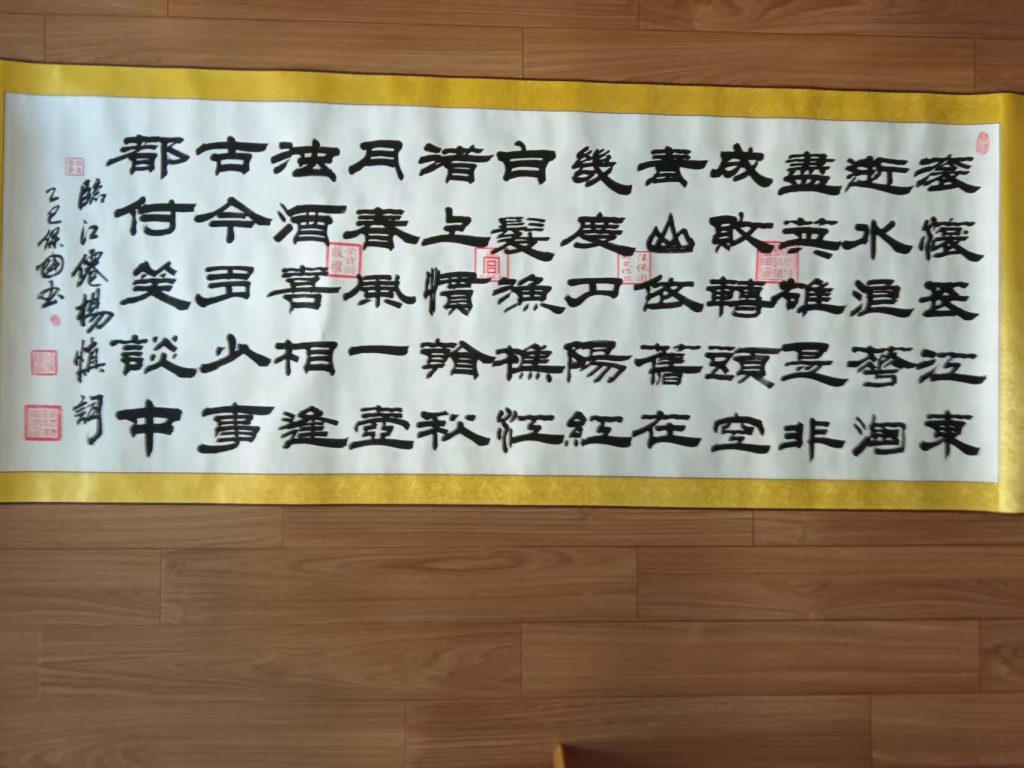 滚滾長江東
逝水浪華淘
盡英雄是非
成敗轉頭空
青山依舊在
幾度夕陽紅
白髮漁樵江
渚上慣看秋
月春風一壺
浊酒喜相逢
古今多少事
都付笑談中
臨江僊楊慎詞
乙巳保國书